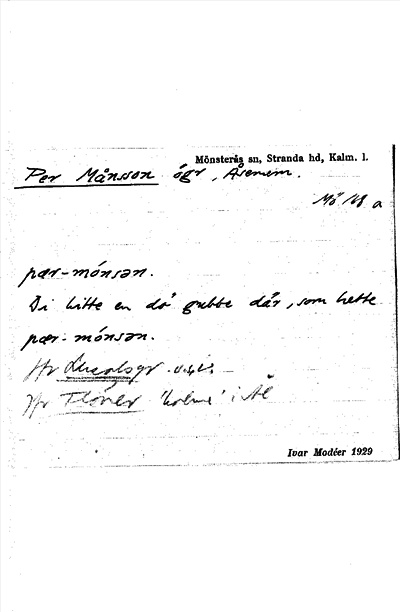 Mönsterås sn, Stranda hd, Kalm. l.
Per Månsson ögr, Åsenem.
Mö 168 a
pær-mónsən.
Di hitte en dö gubbe där, som hette
pær-mónsən.
Jfr
Jfr Flóner 'holme' i Ål
Ivar Modéer 1929